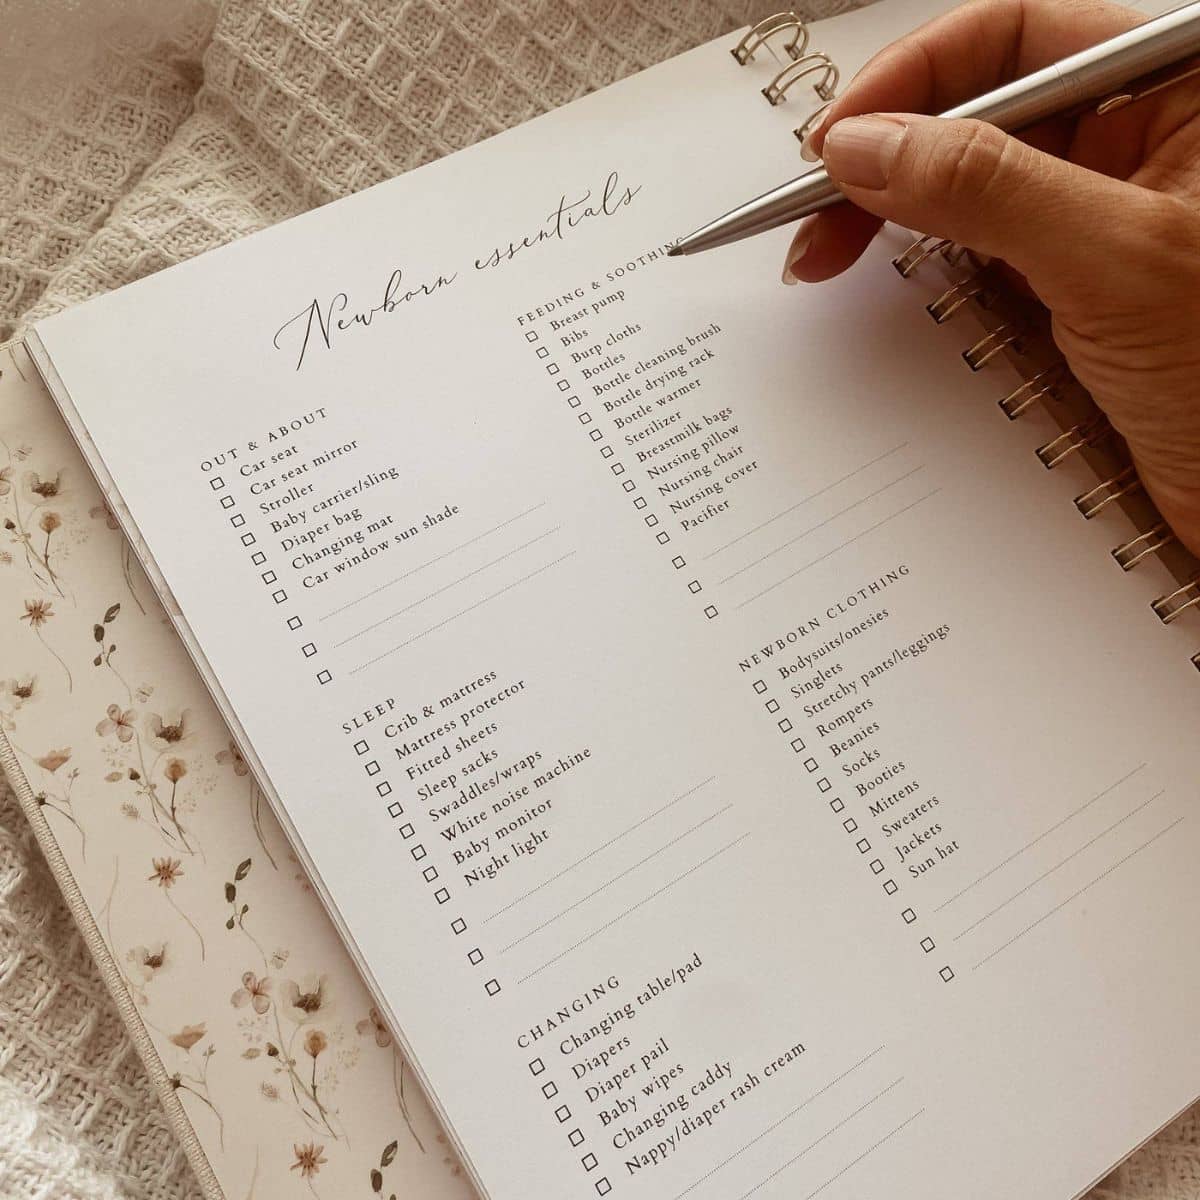 Newborn essentials
OUT & ABOUT
Car seat
Car seat mirror
Stroller
Baby carrier/sling
Diaper bag
Changing mat
Car window sun shade
SLEEP
Crib & mattress
Mattress protector
Fitted sheets
Sleep sacks
Swaddles/wraps
White noise machine
Baby monitor
Night light
CHANGING
Changing table/pad
Diapers
Diaper pail
Baby wipes
Changing caddy
Nappy/diaper rash cream
FEEDING & SOOTHING
Breast pump
Bibs
Burp cloths
Bottles
Bottle cleaning brush
Bottle drying rack
Bottle warmer
Sterilizer
Breastmilk bags
Nursing pillow
Nursing chair
Nursing cover
Pacifier
NEWBORN CLOTHING
Bodysuits/onesies
Singlets
Stretchy pants/leggings
Rompers
Beanies
Socks
Booties
Mittens
Sweaters
Jackets
Sun hat